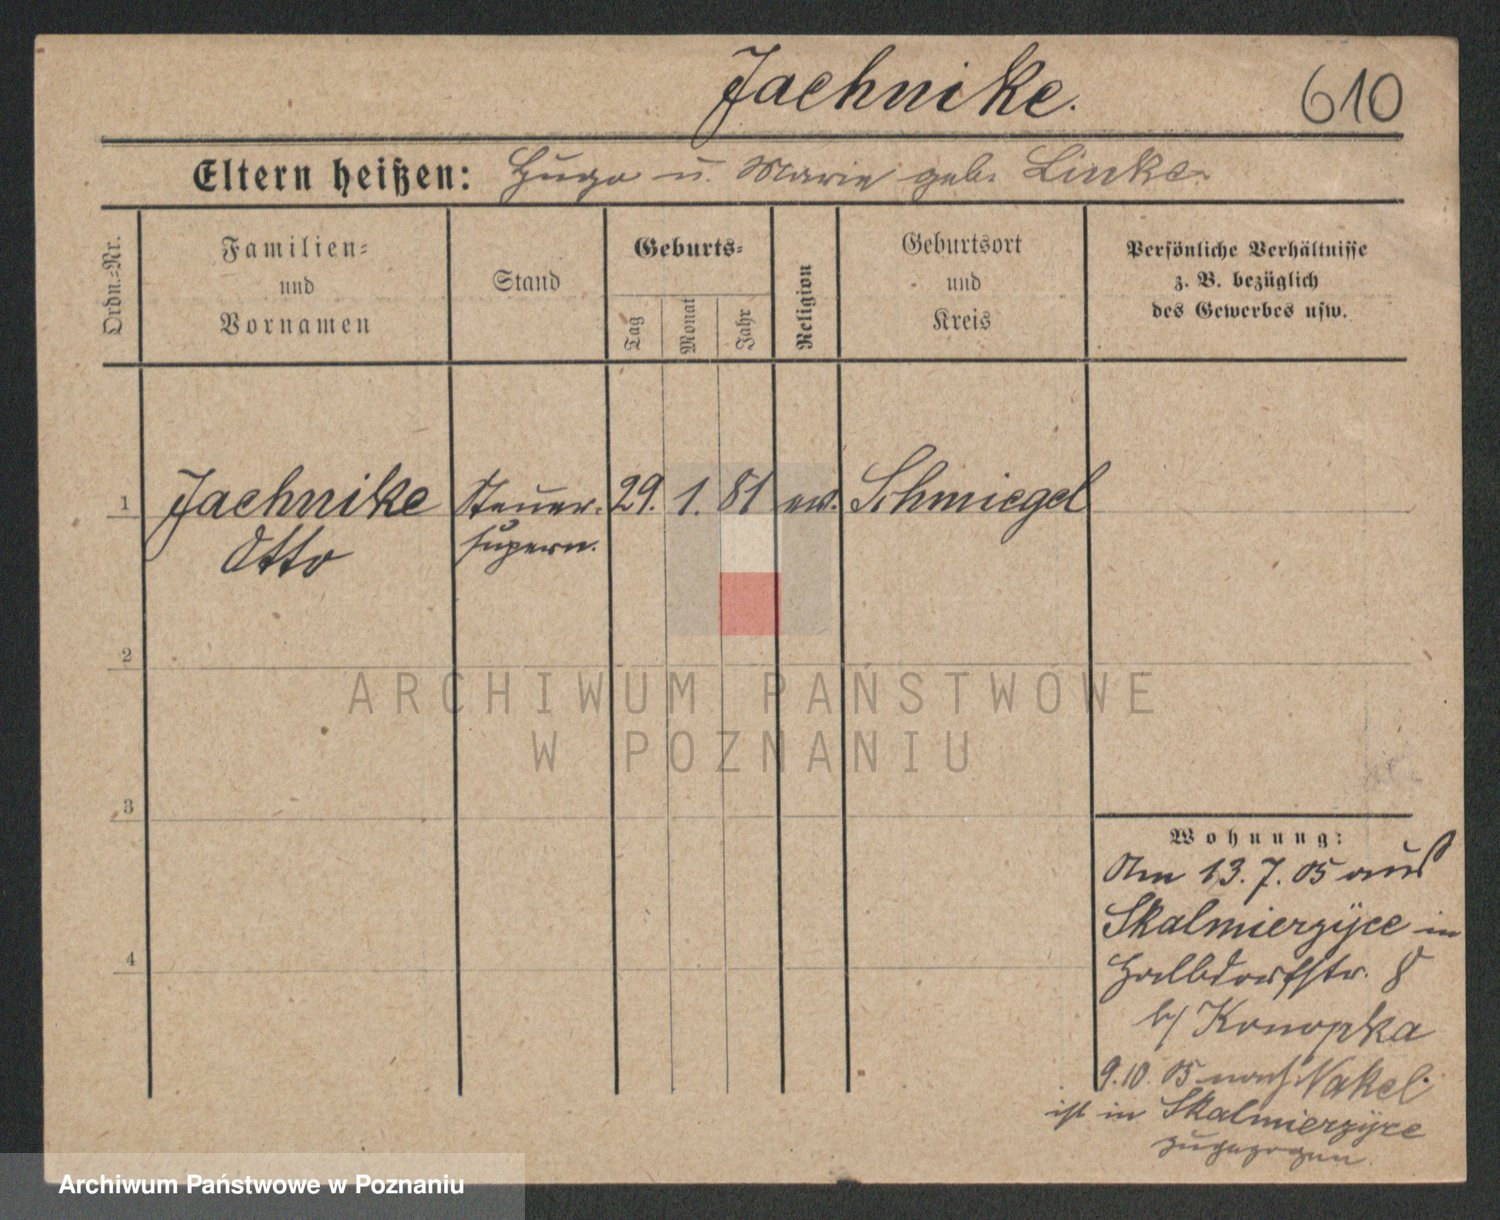 Jaehnike.
610
Eltern heißen: Hugo u. Marie geb. Linke
Ordn.-Nr.
Familien-
und
Vornamen
Stand
Geburts-
Tag
Monat
Jahr
Religion
Geburtsort
und
Kreis
Persönliche Verhältnisse
z. B. bezüglich
des Gewerbes usw.
1 Jaehnike Steuer- 29. 1. 81 ev. Schmiegel
Otto supern.
2
ARCHIWUM PAŃSTWOWE
W POZNANIU
3
Wohnung:
Am 13.7.05 aus
Skalmierzÿce in
Halbdorfstr. 8
b/ Konopka
4
9.10.05 nach Nakel.
ist in Skalmierzÿce
zugezogen.
Archiwum Państwowe w Poznaniu